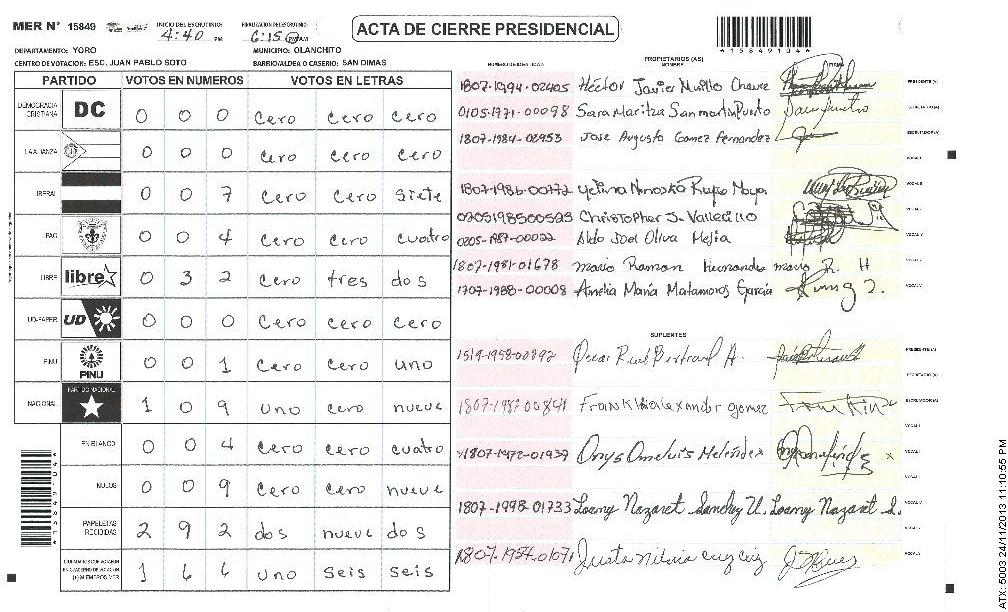 MER N° 15849
INICIO DEL ESCRUTINIO:
4:40 PM
FINALIZACION ESCRUTINIO:
6:15 PM
ACTA DE CIERRE PRESIDENCIAL
15849104
DEPARTAMENTO: YORO
MUNICIPIO: OLANCHITO
CENTRO DE VOTACION: ESC. JUAN PABLO SOTO
BARRIO/ALDEA O CASERIO: SAN DIMAS
PARTIDO VOTOS EN NUMEROS VOTOS EN LETRAS
DEMOCRACIA CRISTIANA DC 0 0 0 Cero Cero Cero
LA ALIANZA 0 0 0 Cero Cero Cero
LIBERAL 0 0 7 Cero Cero Siete
PAC 0 0 4 Cero Cero cuatro
LIBRE libre 0 3 2 Cero tres dos
UD-FAPER UD 0 0 0 Cero Cero Cero
PINU PINU 0 0 1 Cero Cero uno
NACIONAL PARTIDO NACIONAL 1 0 9 uno cero nueve
EN BLANCO 0 0 4 Cero Cero cuatro
NULOS 0 0 9 Cero Cero nueve
PAPELETAS RECIBIDAS 2 9 2 dos nueve dos
CIUDADANOS QUE VOTARON EN CUADERNO DE VOTACION (+) MIEMBROS MER 1 6 6 uno seis seis
NUMERO DE IDENTIDAD
PROPIETARIOS (AS)
NOMBRE
FIRMA
1807-1994-02405 Héctor Javier Murillo Chavez PRESIDENTE (A)
0105-1771-00098 Sara Maritza Sanmartin Puerto SECRETARIO (A)
1807-1984-02953 Jose Augusto Gomez Fernandez ESCRUTADOR (A)
VOCAL I
1807-1986-00772 VOCAL II
0205198500525 Christopher J. Vallecillo VOCAL III
0205-1987-00022 Aldo Joel Oliva Mejia VOCAL IV
1807-1981-01678 mario Ramon Hernandez mario R. H VOCAL V
1707-1988-00008 Amelia María Matamoros García
SUPLENTES
1519-1958-00892 Oscar Bertrand A. PRESIDENTE (A)
SECRETARIO (A)
1807-1987-00841 Frank Alexander gomez ESCRUTADOR (A)
VOCAL I
1807-1972-01937 Onys Omeluis Melendez x VOCAL II
1807-1998-01733 Loany Nazaret Sanchez U. Loany Nazaret S.
1807-1954-01071 Justa cruz cruz
ATX: 5003 24/11/2013 11:10:55 PM